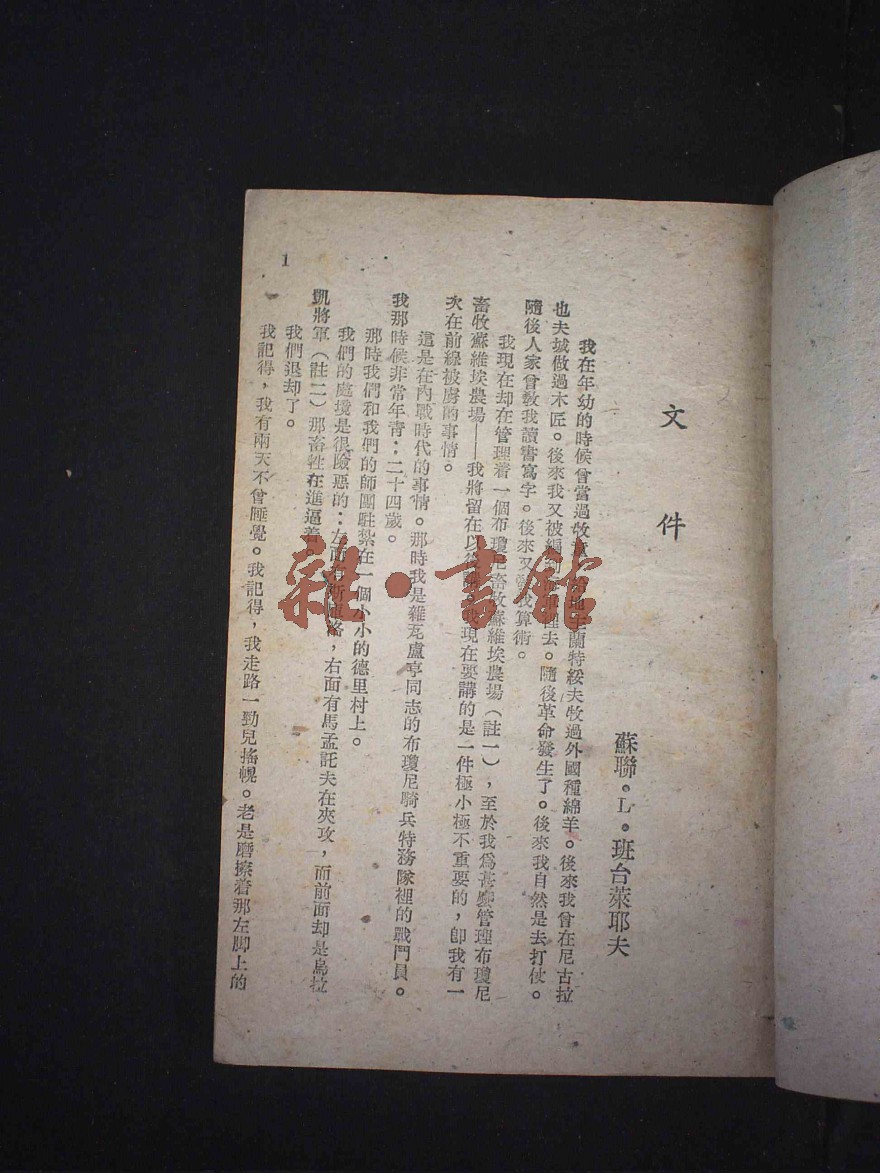 文件
蘇聯・L・班台萊耶夫
我在年幼的時候曾當過牧 蘭特綏夫牧過外國種綿羊。後來我曾在尼古拉
也夫城做過木匠。後來我又被編到 裡去。隨後革命發生了。後來我自然是去打仗。
隨後人家曾敎我讀書寫字。後來又 我算術。
我現在却在管理着一個布瓊尼畜牧蘇維埃農場(註一),至於我爲甚麼管理布瓊尼
畜牧蘇維埃農場——我將留在以後 我現在要講的是一件極小極不重要的,卽我有一
次在前線被虜的事情。
這是在內戰時代的事情。那時我是雜瓦盧亭同志的布瓊尼騎兵特務隊裡的戰鬥員。
我那時候非常年靑:二十四歲。
那時我們和我們的師團駐紮在一個小小的德里村上。
我們的處境是很險惡的:左面有 ,右面有馬孟託夫在夾攻,而前面却是烏拉
凱將軍(註二)那畜牲在進逼着。
我們退却了。
我記得,我有兩天不曾睡覺。我記得,我走路一勁兒搖幌。老是磨擦着那左脚上的
1
雜・書館